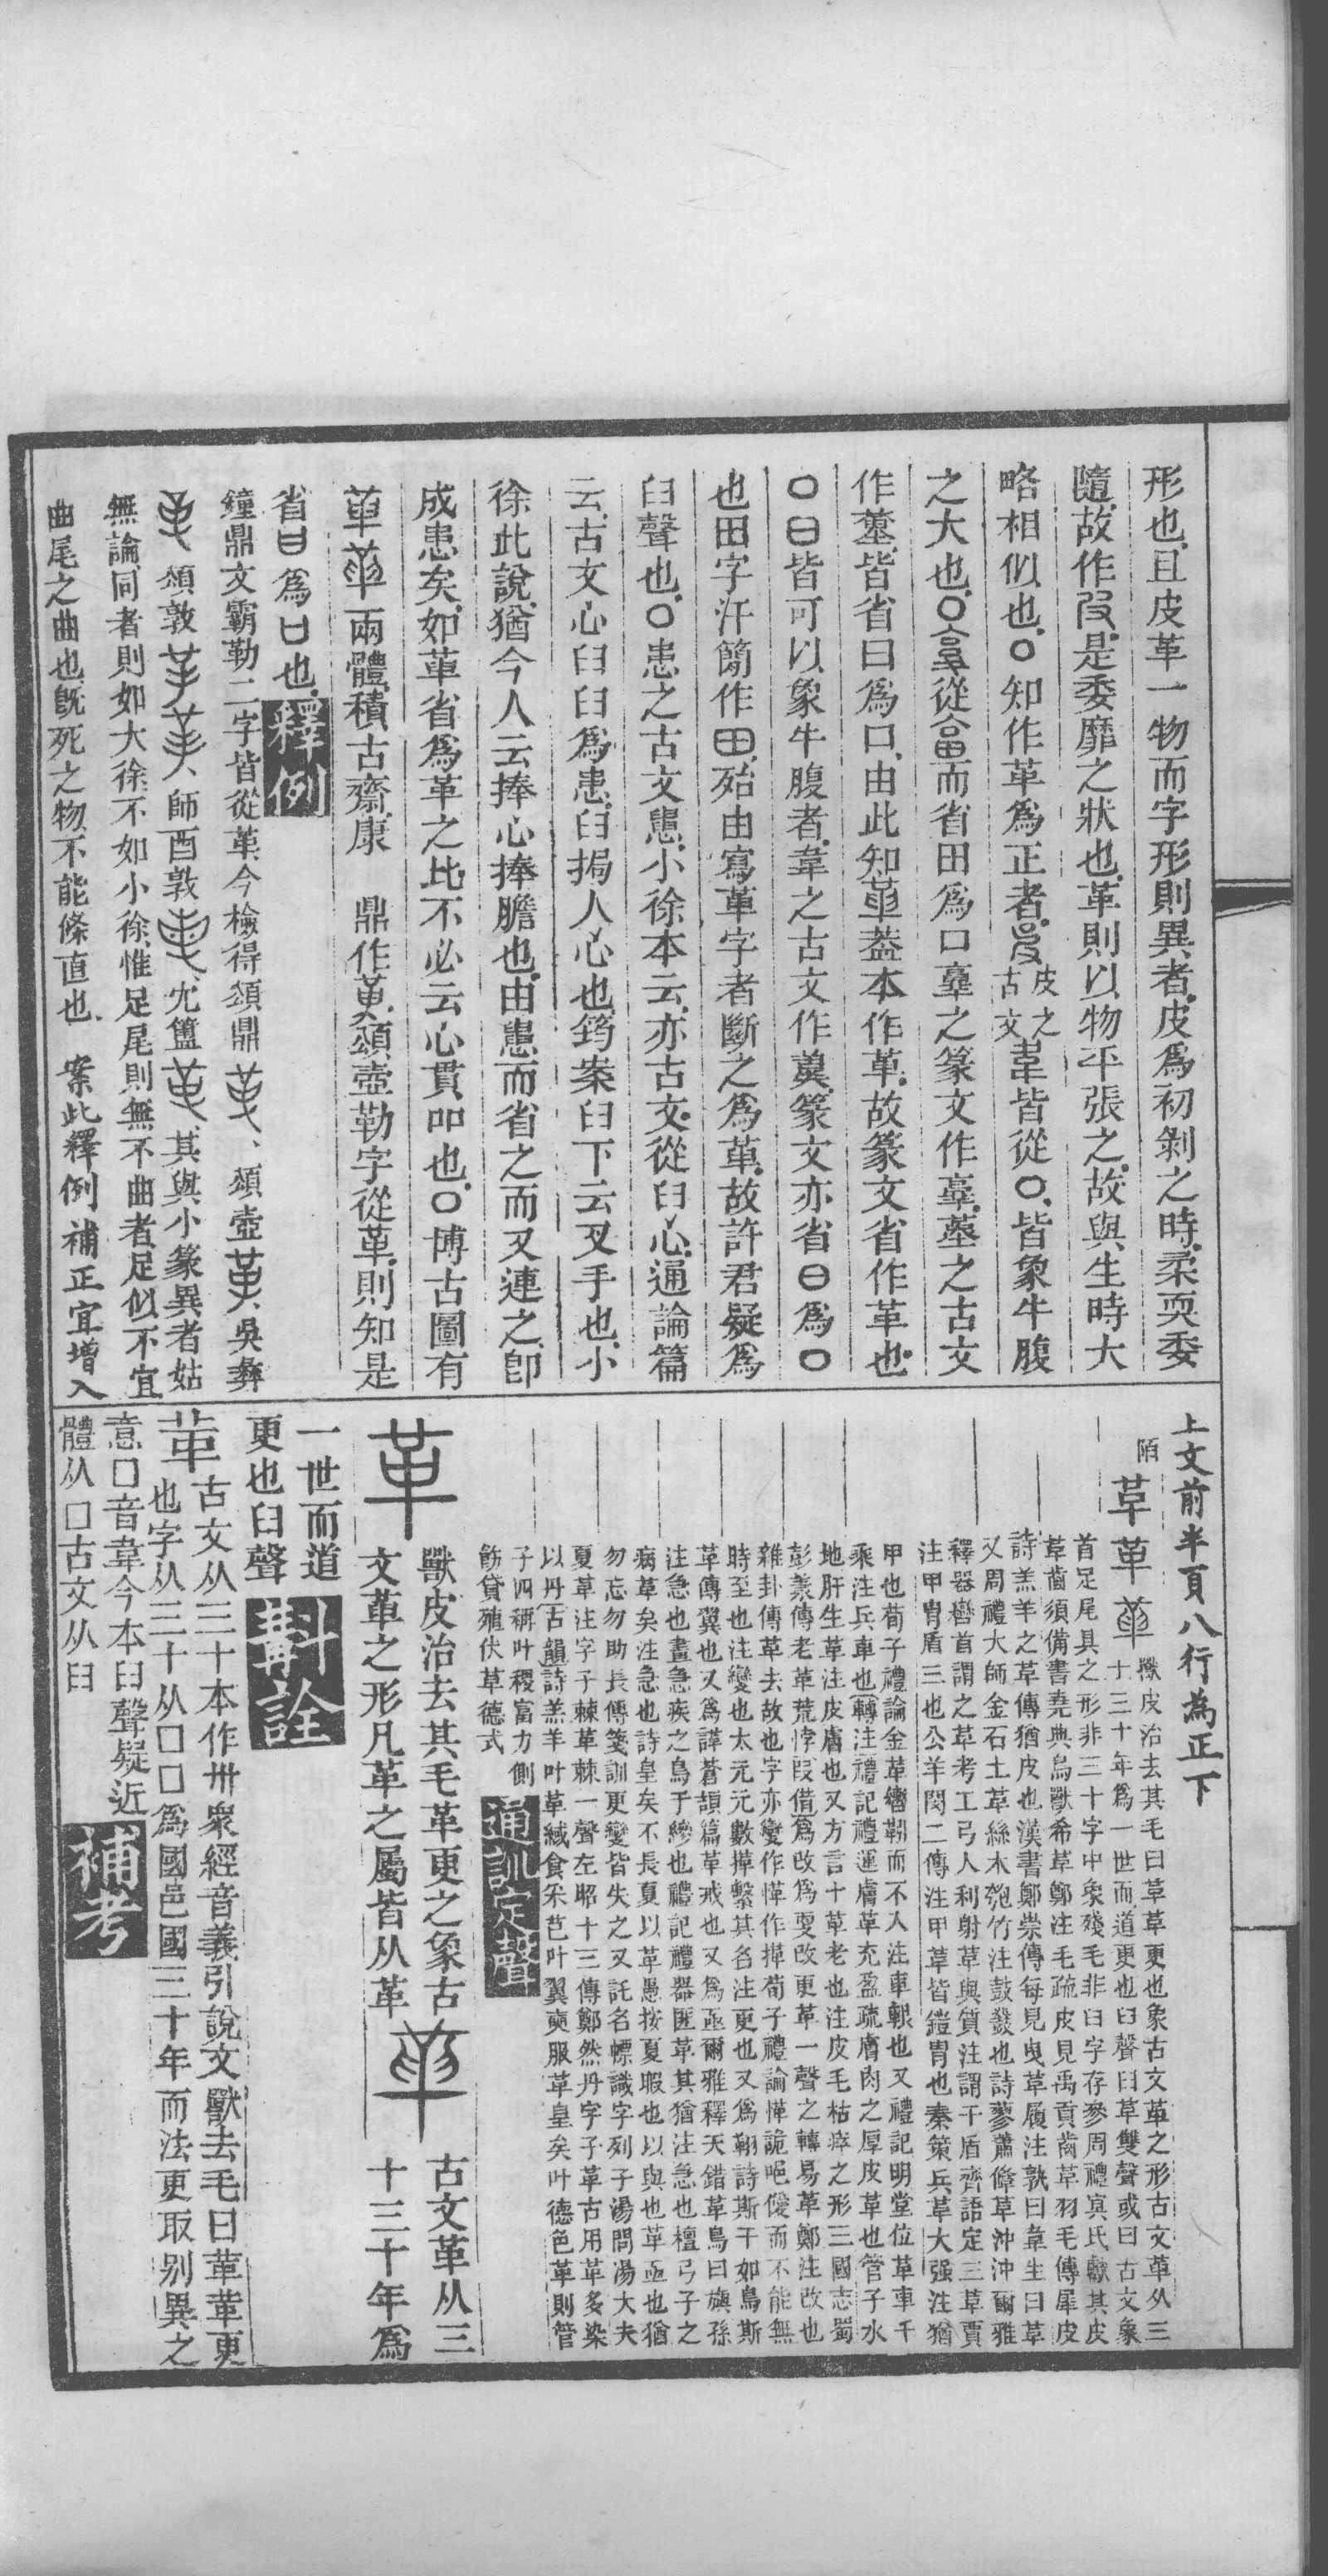 形也且皮革一物而字形則異者皮爲初剝之時柔耎委
隨故作𠬝是委靡之狀也革則以物平張之故與生時大
略相似也○知作革爲正者皮之古文韋皆從○皆象牛腹
之大也○從畗而省田爲口臺之篆文作臺墓之古文
作䔲皆省曰爲口由此知革葢本作革故篆文省作革也
○日皆可以象牛腹者韋之古文作𡙇篆文亦省日爲○
也田字汗簡作田殆由寫革字者斷之爲革故許君疑爲
臼聲也○患之古文悤小徐本云亦古文從臼心通論篇
云古文心臼臼爲患臼挶人心也筠案臼下云叉手也小
徐此說猶今人云捧心捧膽也由患而省之而又連之卽
成患矣如革省爲革之比不必云心貫吅也○博古圖有
革革兩體積古齋康鼎作革頌壺勒字從革則知是
省曰爲口也釋例
鐘鼎文霸勒二字皆從革今檢得頌鼎、頌壺、吳彝
、頌敦、師酉敦、尤簠、其與小篆異者姑
無論同者則如大徐不如小徐惟足尾則無不曲者足似不宜
曲尾之曲也旣死之物不能條直也 案此釋例補正宜增入
上文前半頁八行為正下
陌 革革革 獸皮治去其毛曰革革更也象古文革之形古文革从三
十三十年爲一世而道更也臼聲臼革雙聲或曰古文象
首足尾具之形非三十字中象殘毛非臼字存參周禮冥氏獻其皮
革齒須備書堯典鳥獸希革鄭注毛疏皮見禹貢齒革羽毛傳犀皮
詩羔羊之革傳猶皮也漢書鄭崇傳每見曳革履注孰曰韋生曰革
又周禮大師金石土革絲木匏竹注鼓鼗也詩蓼蕭鞗革沖沖爾雅
釋器轡首謂之革考工弓人利射革與質注謂干盾齊語定三革賈
注甲胄盾三也公羊閔二傳注甲革皆鎧胄也秦策兵革大强注猶
甲也荀子禮論金革轡靷而不入注車軶也又禮記明堂位革車千
乘注兵車也轉注禮記禮運膚革充盈疏膚肉之厚皮革也管子水
地肝生革注皮膚也又方言十革老也注皮毛枯瘁之形三國志蜀
彭羕傳老革荒悖叚借爲改爲更改更革一聲之轉易革鄭注改也
雜卦傳革去故也字亦變作愅作㨰荀子禮論愅詭唈僾而不能無
時至也注變也太元元數㨰繫其名注更也又爲翱詩斯干如鳥斯
革傳翼也又爲諽蒼頡篇革戒也又爲亟爾雅釋天錯革鳥曰旟孫
注急也畫急疾之鳥于縿也禮記禮器匪革其猶注急也檀弓子之
病革矣注急也詩皇矣不長夏以革愚按夏暇也以與也革亟也猶
勿忘勿助長傳箋訓更變皆失之又託名幖識字列子湯問湯大夫
夏革注字子棘革棘一聲左昭十三傳鄭然丹字子革古用革多染
以丹古韻詩羔羊叶革緎食采芑叶翼奭服革皇矣叶德色革則管
子四稱叶稷富力側
飭貸殖伏革德式 通訓定聲
革 獸皮治去其毛革更之象古
文革之形凡革之屬皆从革 革 古文革从三
十三十年爲
一世而道
更也臼聲 斠詮
革 古文从三十本作卅衆經音義引說文獸去毛曰革革更
也字从三十从口口爲國邑國三十年而法更取别異之
意口音韋今本臼聲疑近
體从口古文从臼 補考